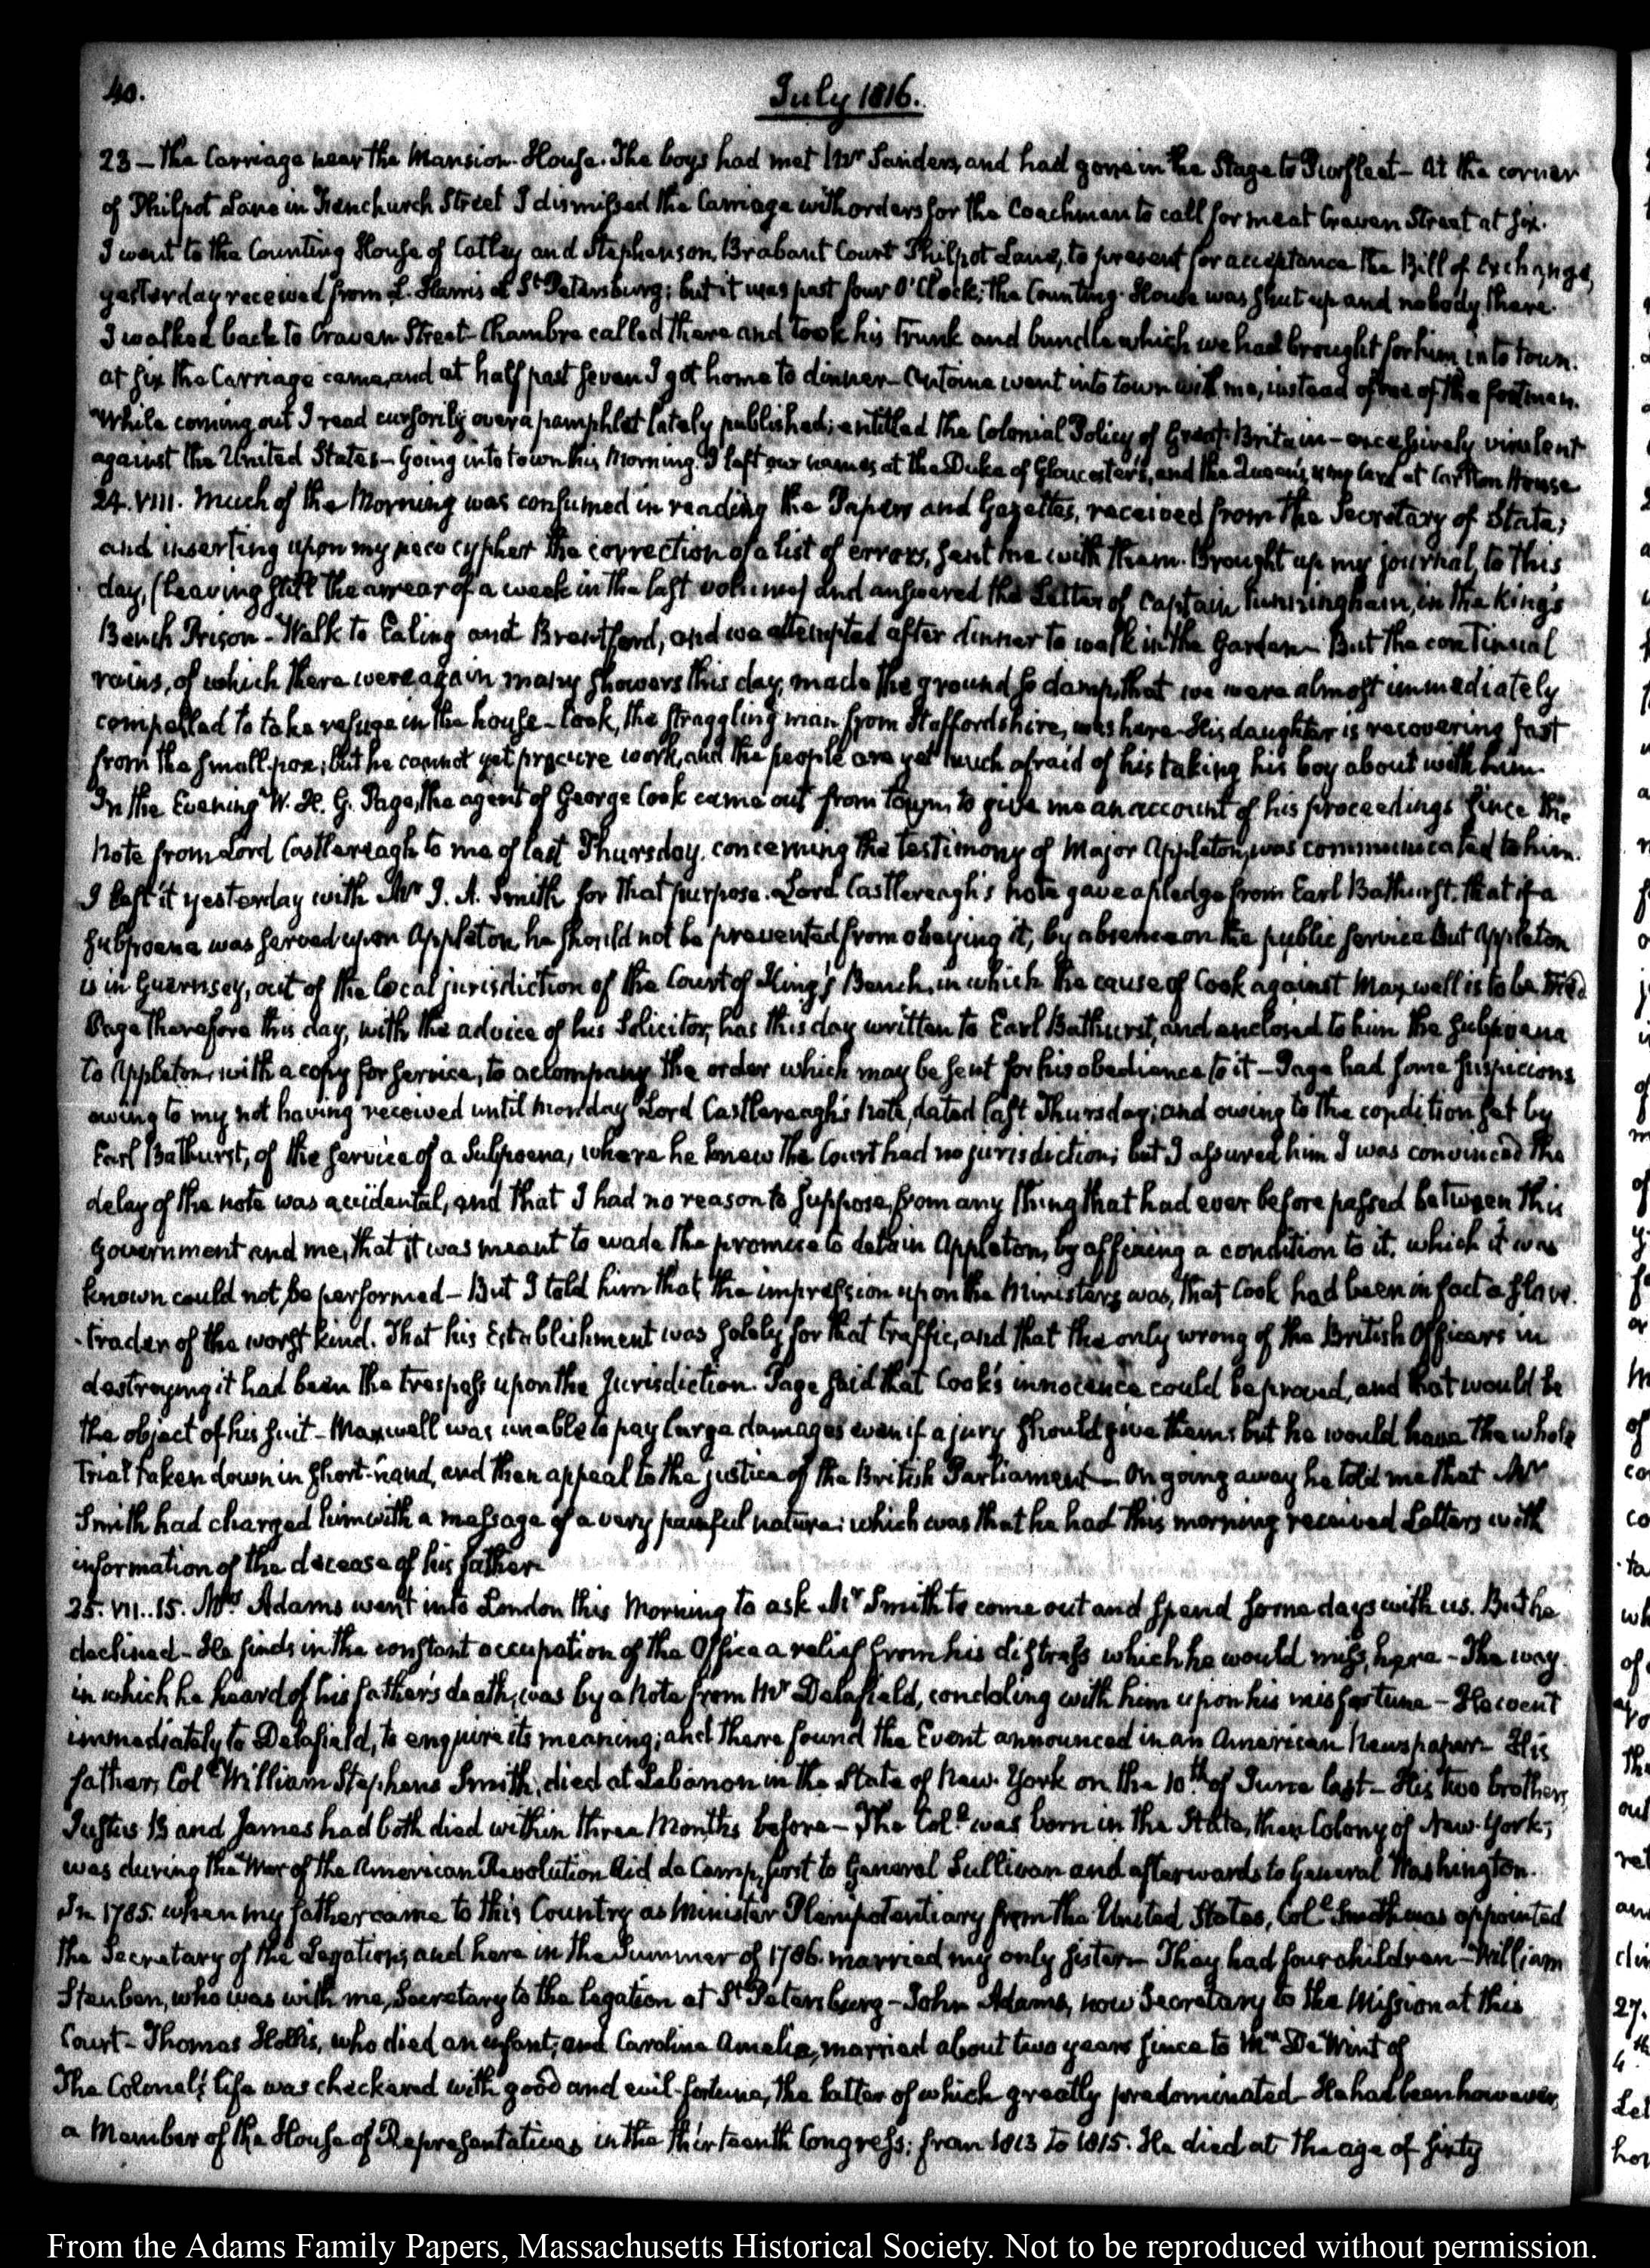 40.
July 1816.
23 – the Carriage near the Mansion-House. The boys had met Mr Sanders, and had gone in the Stage to Purfleet – At the corner
of Philpot Lane in Fenchurch Street I dismissed the Carriage with orders for the Coachman to call for me at Craven Street at six.
I went to the Counting House of Catley and Stephenson, Brabant Court Philpot Lane, to present for acceptance the Bill of exchange,
yesterday received from L. Harris at St Petersburg; but it was past four O'Clock; the Counting-House was shut up and nobody there.
I walked back to Craven Street – Chambre called there and took his Trunk and bundle which we had brought for him into town.
at six the Carriage came, and at half past seven I got home to dinner – Antoine went into town with me, instead of one of the footmen.
While coming out I read cursorily over a pamphlet lately published; entitled the Colonial Policy of Great-Britain – excessively virulent
against the United States – Going into town this Morning I left our names at the Duke of Gloucester's, and the Queen's, & my card at Carlton House
24. VIII. Much of the Morning was consumed in reading the Papers and Gazettes, received from the Secretary of State;
and inserting upon my new cypher the correction of a list of errors, sent me with them. Brought up my journal, to this
day, (leaving still the arrear of a week in the last volume) and answered the Letter of Captain Cunningham, in the King's
Bench Prison – Walk to Ealing and Brentford, and we attempted after dinner to walk in the Garden – But the continual
rains, of which there were again many showers this day, made the ground so damp, that we were almost immediately
compelled to take refuge in the house – Cook, the straggling man from Staffordshire, was here – His daughter is recovering fast
from the small-pox; but he cannot yet procure work, and the people are yet much afraid of his taking his boy about with him –
In the Evening W. H. G. Page, the agent of George Cook came out from town, to give me an account of his proceedings since the
Note from Lord Castlereagh to me of last Thursday, concerning the testimony of Major Appleton, was communicated to him.
I left it yesterday with Mr J. A. Smith for that purpose. Lord Castlereagh's note gave a pledge from Earl Bathurst, that if a
subpoena was served upon Appleton, he should not be prevented from obeying it, by absence on the public service But Appleton
is in Guernsey, out of the local jurisdiction of the Court of King's Bench, in which the cause of Cook against Maxwell is to be tried
Page therefore this day, with the advice of his Solicitor, has this day written to Earl Bathurst, and enclosed to him the subpoena
to Appleton, with a copy for service, to accompany the order which may be sent for his obedience to it – Page had some suspicions
owing to my not having received until Monday Lord Castlereagh's Note, dated last Thursday; and owing to the condition set by
Earl Bathurst, of the service of a Subpoena, where he knew the Court had no jurisdiction; but I assured him I was convinced the
delay of the note was accidental, and that I had no reason to suppose, from any thing that had ever before passed between this
Government and me, that it was meant to evade the promise to detain Appleton, by affixing a condition to it, which it was
known could not be performed – But I told him that the impression upon the Ministers was, that Cook had been in fact a slave
-trader of the worst kind. That his Establishment was solely for that traffic, and that the only wrong of the British Officers in
destroying it had been the trespass upon the Jurisdiction. Page said that Cook's innocence could be proved, and that would be
the object of his suit – Maxwell was unable to pay large damages even if a jury should give them; but he would have the whole
Trial taken down in short-hand, and then appeal to the justice of the British Parliament – On going away he told me that Mr
Smith had charged him with a message of a very painful nature; which was that he had this morning received Letters with
information of the decease of his father –
25. VII..15. Mrs Adams went into London this Morning to ask Mr Smith to come out and spend some days with us. But he
declined – He finds in the constant occupation of the Office a relief from his distress which he would miss, here – The way
in which he heard of his father's death, was by a Note from Mr Delafield, condoling with him upon his misfortune – He went
immediately to Delafield, to enquire its meaning; and there found the Event announced in an American Newspaper – His
father, Coll William Stephens Smith, died at Lebanon in the State of New-York on the 10th of June last – His two brothers,
Justus B and James had both died within three Months before – The Coll was born in the State, then Colony of New-York;
was during the War of the American Revolution Aid de Camp, first to General Sullivan and afterwards to General Washington.
In 1785. when my father came to this Country as Minister Plenipotentiary from the United States, Coll Smith was appointed
the Secretary of the Legation; and here in the Summer of 1786. married my only sister – They had four children – William
Steuben, who was with me, Secretary to the legation at St Petersburg – John Adams, now Secretary to the Mission at this
Court – Thomas Hollis, who died an infant; and Caroline Amelia, married about two years since to Mr De Wint of
The Colonel's life was checkered with good and evil fortune, the latter of which greatly predominated – He had been however,
a Member of the House of Representatives in the thirteenth Congress; from 1813 to 1815. He died at the age of sixty
From the Adams Family Papers, Massachusetts Historical Society. Not to be reproduced without permission.